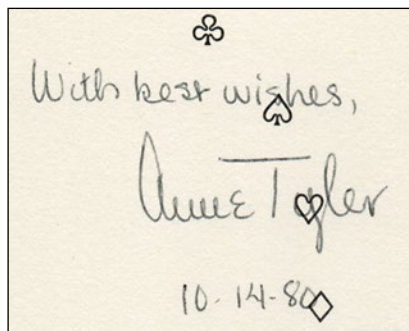 With best wishes,
Anne Tyler
10-14-80